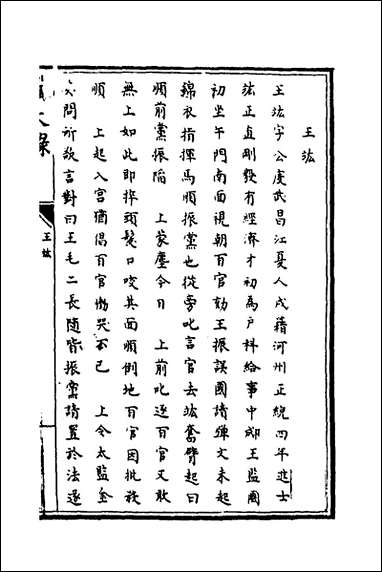 王竑
王竑字公度武昌江夏人戍籍河州正統四年進士
竑正直剛毅有經濟才初為戶科給事中郕王監國
初坐午門南面視朝百官劾王振誤國請彈文未起
錦衣指揮馬順振黨也從旁叱言官去竑奮臂起曰
順前黨振陷 上蒙塵今日 上前叱逐百官又敢
無上如此即捽頭髮口咬其面順倒地百官因批殺
順 上起入宮猶倡百官慟哭不已 上令太監金
問所欲言對曰王毛二長隨皆振黨請置於法遂
王竑